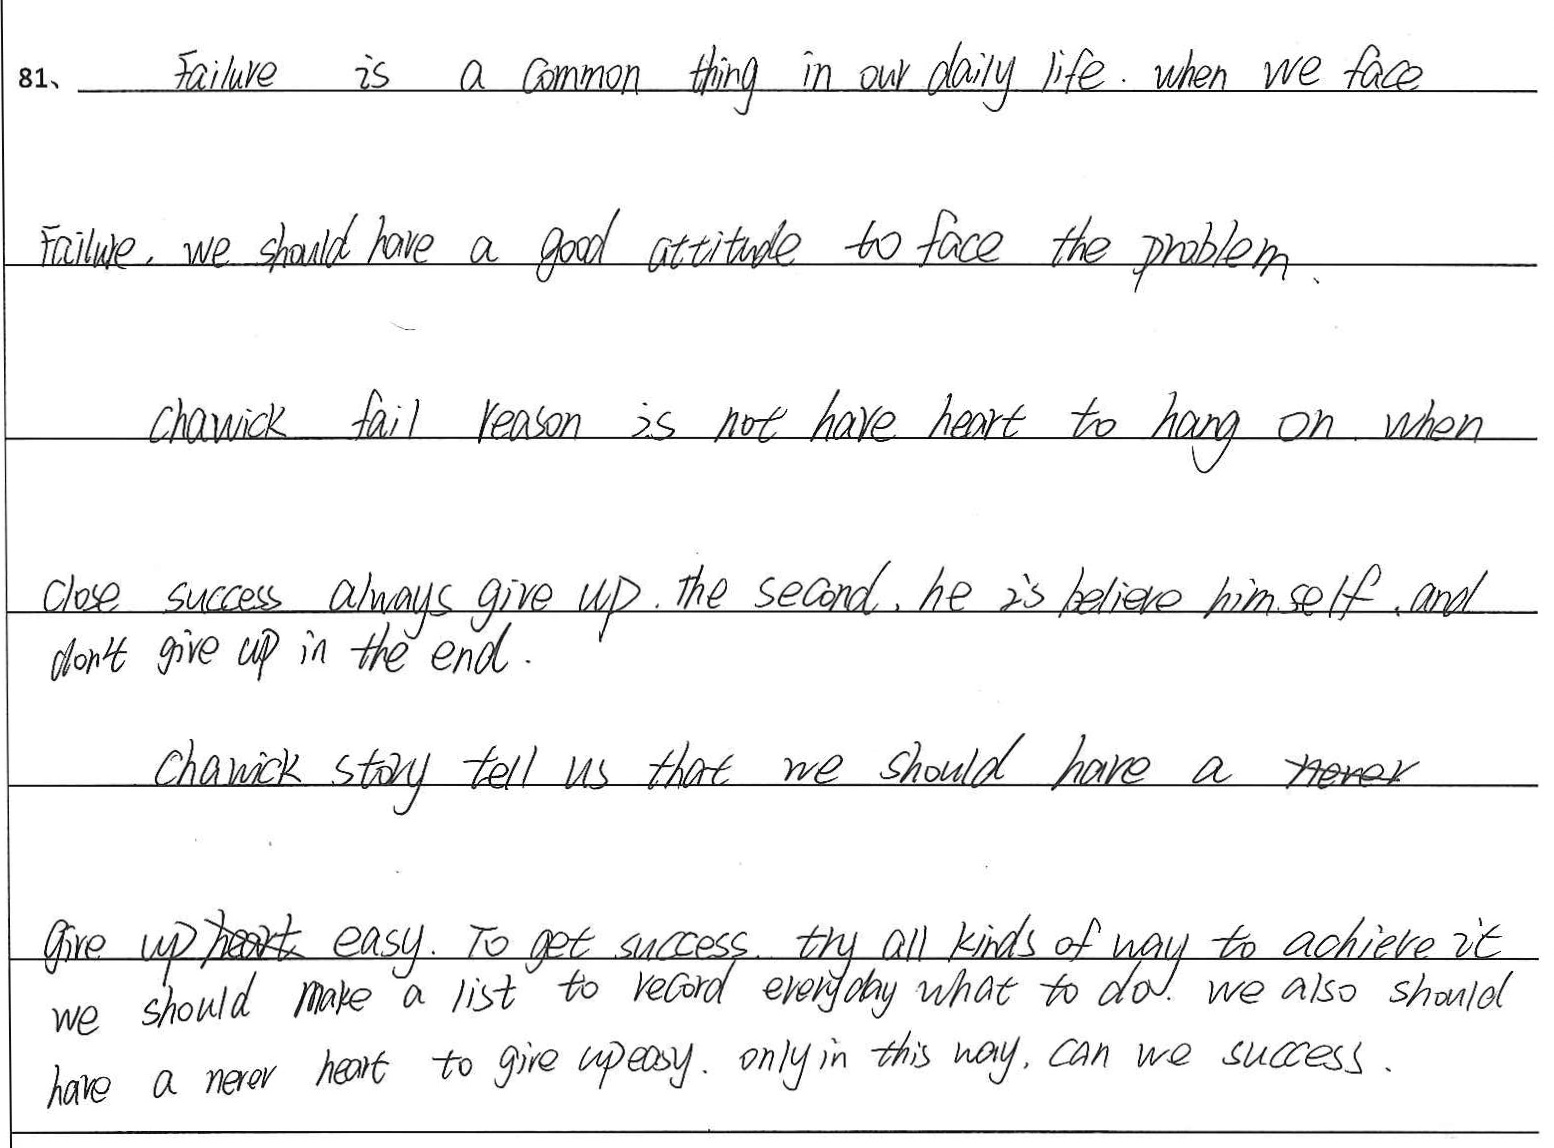 81、 Failure is a common thing in our daily life. when we face
Failure, we should have a good attitude to face the problem.
Chawick fail reason is not have heart to hang on when
close success always give up. The second, he is believe himself, and
don't give up in the end.
Chawick story tell us that we should have a never
give up heart easy. To get success. try all kinds of way to achieve it
we should make a list to record everyday what to do. we also should
have a never heart to give up easy. only in this way, can we success.